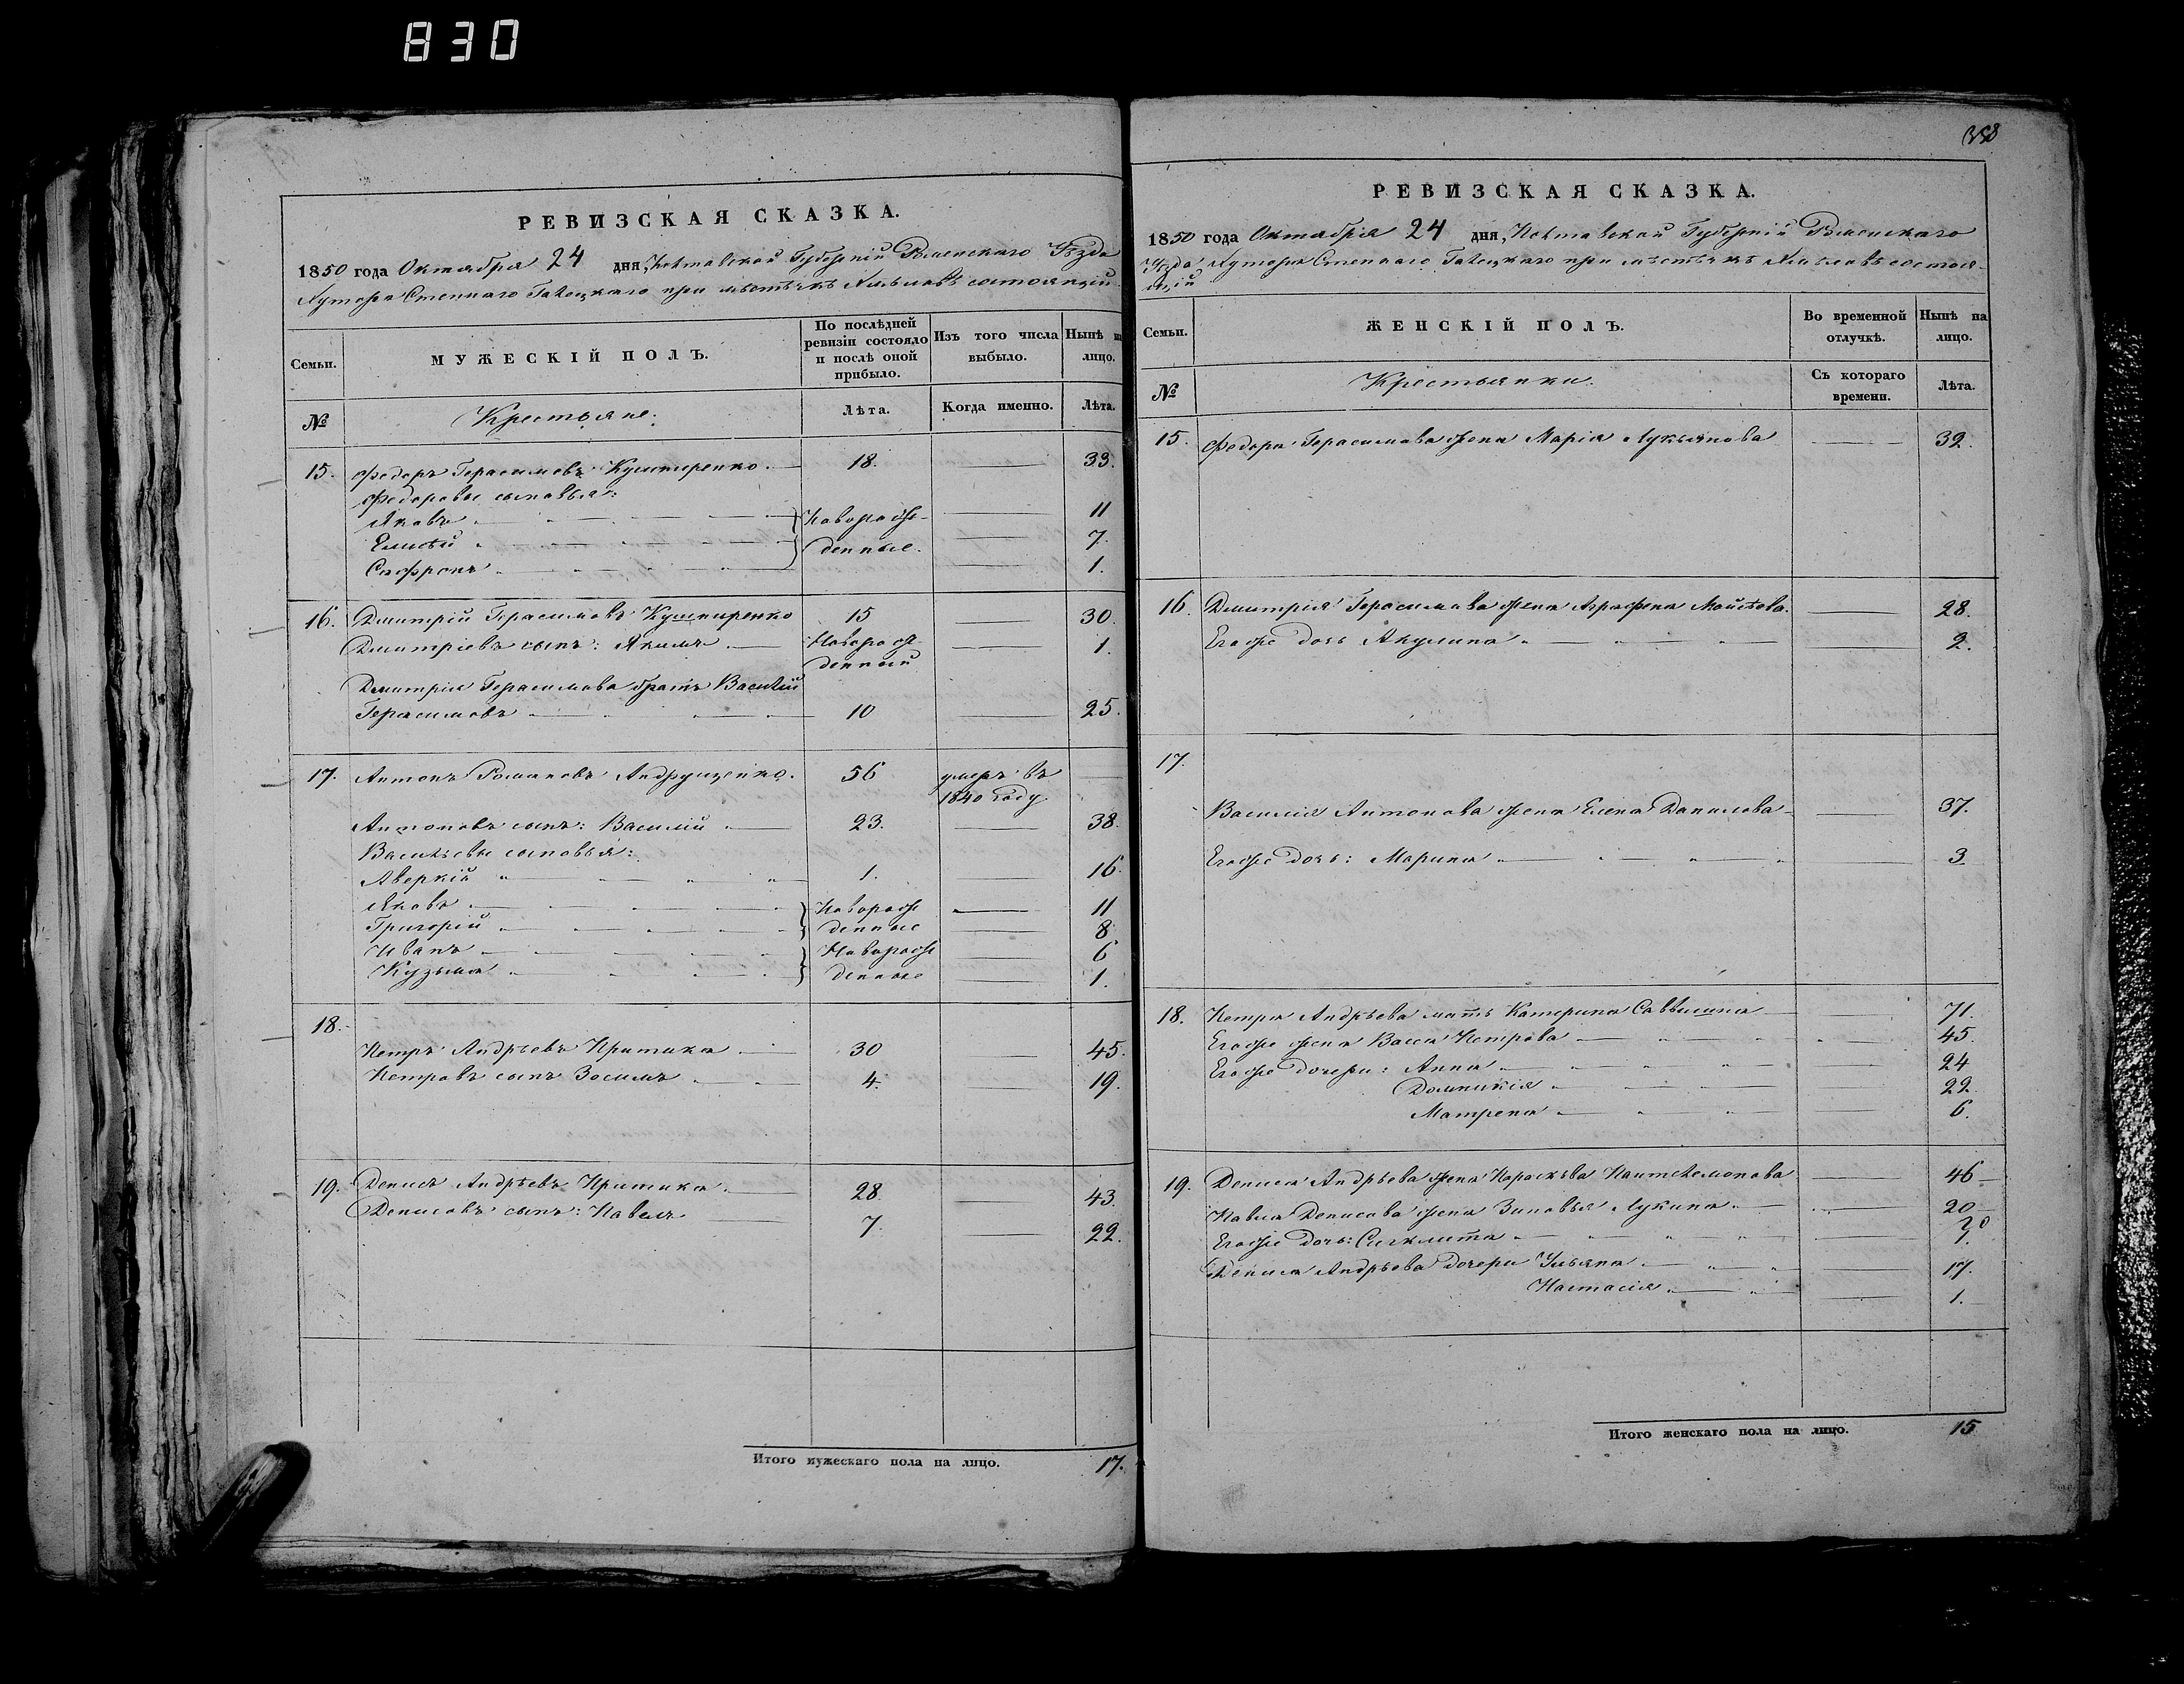 830
РЕВИЗСКАЯ СКАЗКА.
1850 года Октября 24 дня, Полтавской Губерніи Роменскаго Уезда
Хутора Степнаго Галецкаго при местѣчкѣ состоящій
Семьи.
МУЖЕСКІЙ ПОЛЪ.
По послѣдней ревизіи состояло и послѣ оной прибыло.
Изъ того числа выбыло.
Нынѣ на лицо.
№
Крестьяне.
Лѣта.
Когда именно.
Лѣта.
15. Федоръ Герасимовъ Кушниренко. 18. 33.
Федоровы сыновья:
Яковъ Новорож- 11
Елисѣй денные. 7.
Сафронъ 1.
16. Дмитрій Герасимовъ Кушниренко 15 30.
Дмитріевъ сынъ: Якимъ Новорож- 1.
денный
Дмитрія Герасимова братъ Василій
Герасимовъ 10 25.
17. Антонъ Романовъ Андрущенко. 56 умеръ въ
1840 году
Антоновъ сынъ: Василій 23. 38.
Васильевы сыновья:
Аверкій 1. 16.
Яковъ Новорож 11
Григорій денные 8
Иванъ Новорож 6
Кузьма денные 1.
18.
Петръ Андрѣевъ Притика 30 45.
Петровъ сынъ Зосимъ 4. 19.
19. Денисъ Андрѣевъ Притика 28. 43.
Денисовъ сынъ: Павелъ 7. 22.
Итого мужескаго пола на лицо. 17.
358
РЕВИЗСКАЯ СКАЗКА.
1850 года Октября 24 дня, Полтавской Губерніи Роменскаго
Уезда Хутора Степнаго Галецкаго при местѣчкѣ состоя-
щій
Семьи.
ЖЕНСКІЙ ПОЛЪ.
Во временной отлучкѣ.
Нынѣ на лицо.
№
Крестьянки.
Съ котораго времени.
Лѣта.
15. Федора Герасимова жена Марія Лукьянова 32.
16. Дмитрія Герасимова жена Аграфена Мойсѣева. 28.
Его же дочь Акулина 2.
17.
Василія Антонова жена Елена Данилова 37.
Его же дочь: Марина 3
18. Петра Андрѣева мать Катерина Саввишна 71.
Его же жена Васса Петрова 45.
Его же дочери: Анна 24
Домникія 22.
Матрена 6.
19. Дениса Андрѣева жена Параскѣва Пантелемонова 46
Павла Денисова жена Зиновья Лукина 20
Его же дочь:
Дениса Андрѣева дочери Ульяна 17.
Настасія 1.
Итого женскаго пола на лицо. 15